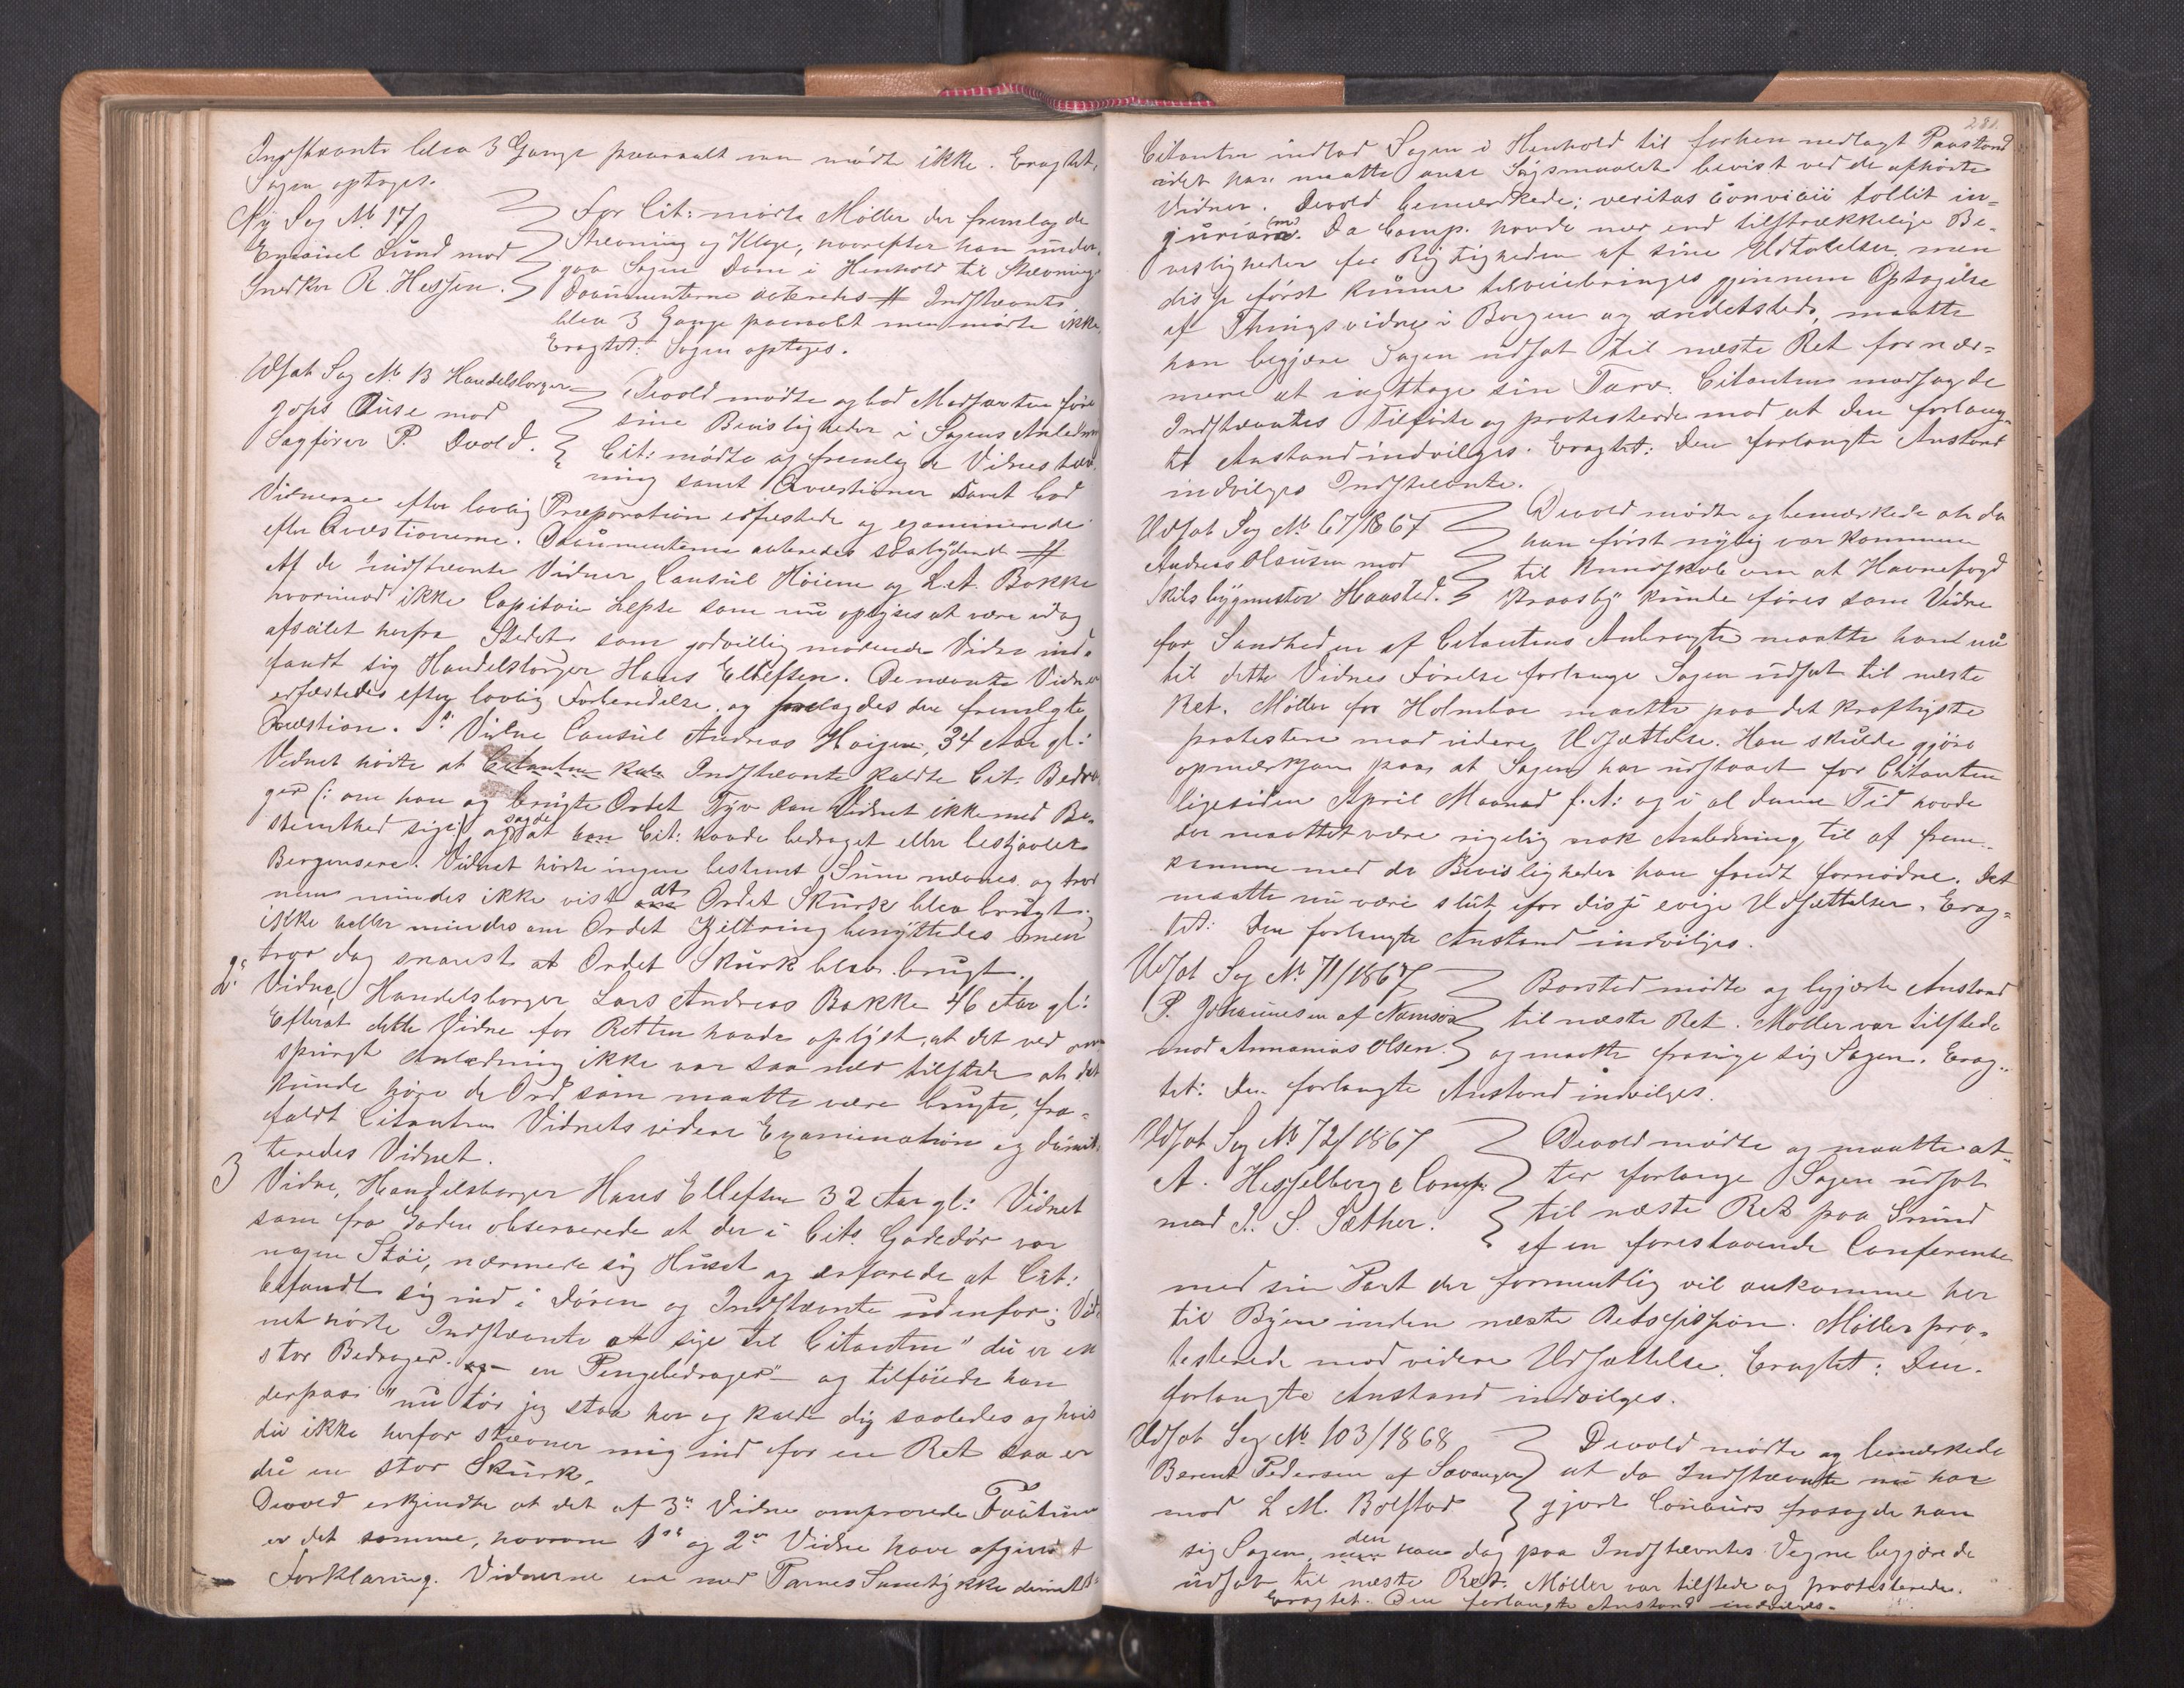 Indstævnte blev 3 Gange paaraabt men mødte ikke. Eragtet,
Sagen optages.
Ny Sag No 17
Enevind Lund mod
Snedker R. Hessen.
For Cit: mødte Møller der fremlagde
Stevning og Klage, hvorefter han under-
gav Sagen Dom i Henhold til Stævning.
Documenterne acteredes # Indstævnte
blev 3 Gange paaraabt men mødte ikke,
Eragtet: Sagen optages.
Udsat Sag No 13 Handelsborger
Duse mod
Sagfører P. Devold.
Devold mødte og bad Modparten føre
sine Bevisligheder i Sagens Anledning
Cit: mødte og fremlagde Vidnestæv-
ning samt Qvæstioner samt bad
Vidnerne efter lovlig Præparation edfæstede og examinerede
efter Qvæstionerne. Documenterne acteredes saalydende #
Af de indstævnte Vidner Consul Høiem og L. A. Bakke
hvorimod ikke Capitain Lepse som nu oplyses at være idag
afseilet herfra Stedet, som godvillig mødende Vidne ind-
fandt sig Handelsborger Hans Ellefsen. De nævnte Vidner
edfæstedes efter lovlig Forberedelse, og forelagdes den fremlagte
Qvæstion. 1ste Vidne Consul Andreas Høigem, 34 Aar gl:
Vidnet hørte at Citanten kale Indstævnte kaldte Cit: Bedra-
ger (: om han og brugte Ordet Tyv kan Vidnet ikke med Be-
stemthed sige:) og sagde at han Cit: havde bedraget eller bestjaalet
Bergensere. Vidnet hørte ingen bestemt Sum nævnes og tror
men mindes ikke vist om at Ordet Skurk blev brugt,
ikke heller mindes om Ordet Kjeltring benyttedes men
tror dog snarest at Ordet Skurk blev brugt.
2det Vidne, Handelsborger Lars Andreas Bakke 46 Aar gl:
Efterat dette Vidne for Retten havde oplyst, at det ved om-
spurgt Anledning ikke var saa nær tilstede at det
kunde høre de Ord som maatte være brugte, fra-
faldt Citanten Vidnets videre Examination og dimit-
teredes Vidnet.
3 Vidne, Handelsborger Hans Ellefsen 32 Aar gl: Vidnet
som fra Gaden observerede at der i Cits Gadedør var
nogen Støi, nærmede sig Huset og erfarede at Cit:
befandt sig ind i Døren og Indstævnte udenfor; Vid-
net hørte Indstævnte at sige til Citanten "du er en
stor Bedrager og en Pengebedrager" og tilføiede han
derpaa "nu tør jeg staa her og kalde dig saaledes og hvis
du ikke herfor stævner mig ind for en Ret saa er
du en stor Skurk.
Devold erkjendte at det af 3die Vidne omprovede Factum
er det samme, hvorom 1ste og 2det Vidne have afgivet
Forklaring. Vidnerne ere med Parternes Samtykke dimitt:
281.
Citanten indlod Sagen i Henhold til forhen nedlagt Paastand
idet han maatte anse Søgsmaalet bevist ved de afhørte
Vidner. Devold bemærkede: veritas convicii tollit in-
juriam (m). Da Comp. havde mer end tilstrækkelige Be-
visligheder for Rigtigheden af sine Udtalelser, men
disse først kunne tilveiebringes gjennem Optagelse
af Thingsvidne i Bergen og andetsteds, maatte
han begjære Sagen udsat til næste Ret for nær-
mere at iagttage sin Tarv. Citanten modsagde
Indstævntes Tilførte og protesterede mod at den forlang-
te Anstand indvilges. Eragtet: Den forlangte Anstand
indvilges Indstævnte.
Udsat Sag No 67/1867
Andreas Clausen mod
Skibsbygmester Haasted.
Devold mødte og bemærkede at da
han først nylig var kommen
til Kundskab om at Havnefogd
Kraasby kunde føres som Vidne
for Sandheden af Citantens Anbragte maatte han nu
til dette Vidnes Førelse forlange Sagen udsat til næste
Ret. Møller for Holmboe maatte paa det kraftigste
protestere mod videre Udsættelse. Han skulde gjøre
opmærksom paa, at Sagen har udstaaet for Citanten
ligesiden April Maaned f. A: og i al denne Tid havde
der maattet være rigelig nok Anledning til at frem-
komme med de Bevisligheder han fandt fornødne. Det
maatte nu være slut for disse evige Udsættelser. Erag-
tet: Den forlangte Anstand indvilges.
Udsat Sag No 71/1867
P. Johannesen af Namsos
mod Annanias Olsen.
Borsted mødte og begjærte Anstand
til næste Ret. Møller var tilstede
og maatte frasige sig Sagen. Erag-
tet: Den forlangte Anstand indvilges.
Udsat Sag No 72/1867
A. Hesselberg & Comp.
mod J. S. Sæther.
Devold mødte og maatte at-
ter forlange Sagen udsat
til næste Ret paa Grund
af en forestaaende Conference
med sin Part der formentlig vil ankomme her
til Byen inden næste Retssession. Møller pro-
testerede mod videre Udsættelse. Eragtet: Den
forlangte Anstand indvilges.
Udsat Sag No 103/1868
Berent Pedersen af Levanger
mod L. M. Bolstad
Devold mødte og bemærkede
at da Indstævnte nu har
gjort Concurs frasagde han
sig Sagen, men den han dog paa Indstævntes Vegne begjærede
udsat til næste Ret. Møller var tilstede og protesterede.
Eragtet. Den forlangte Anstand indvilges.